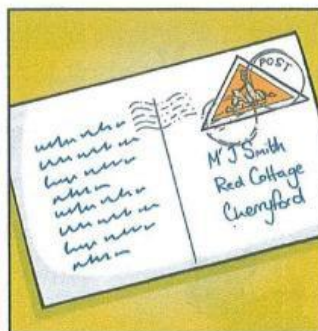 POST
M J Smith
Red Cottage
Cherryford